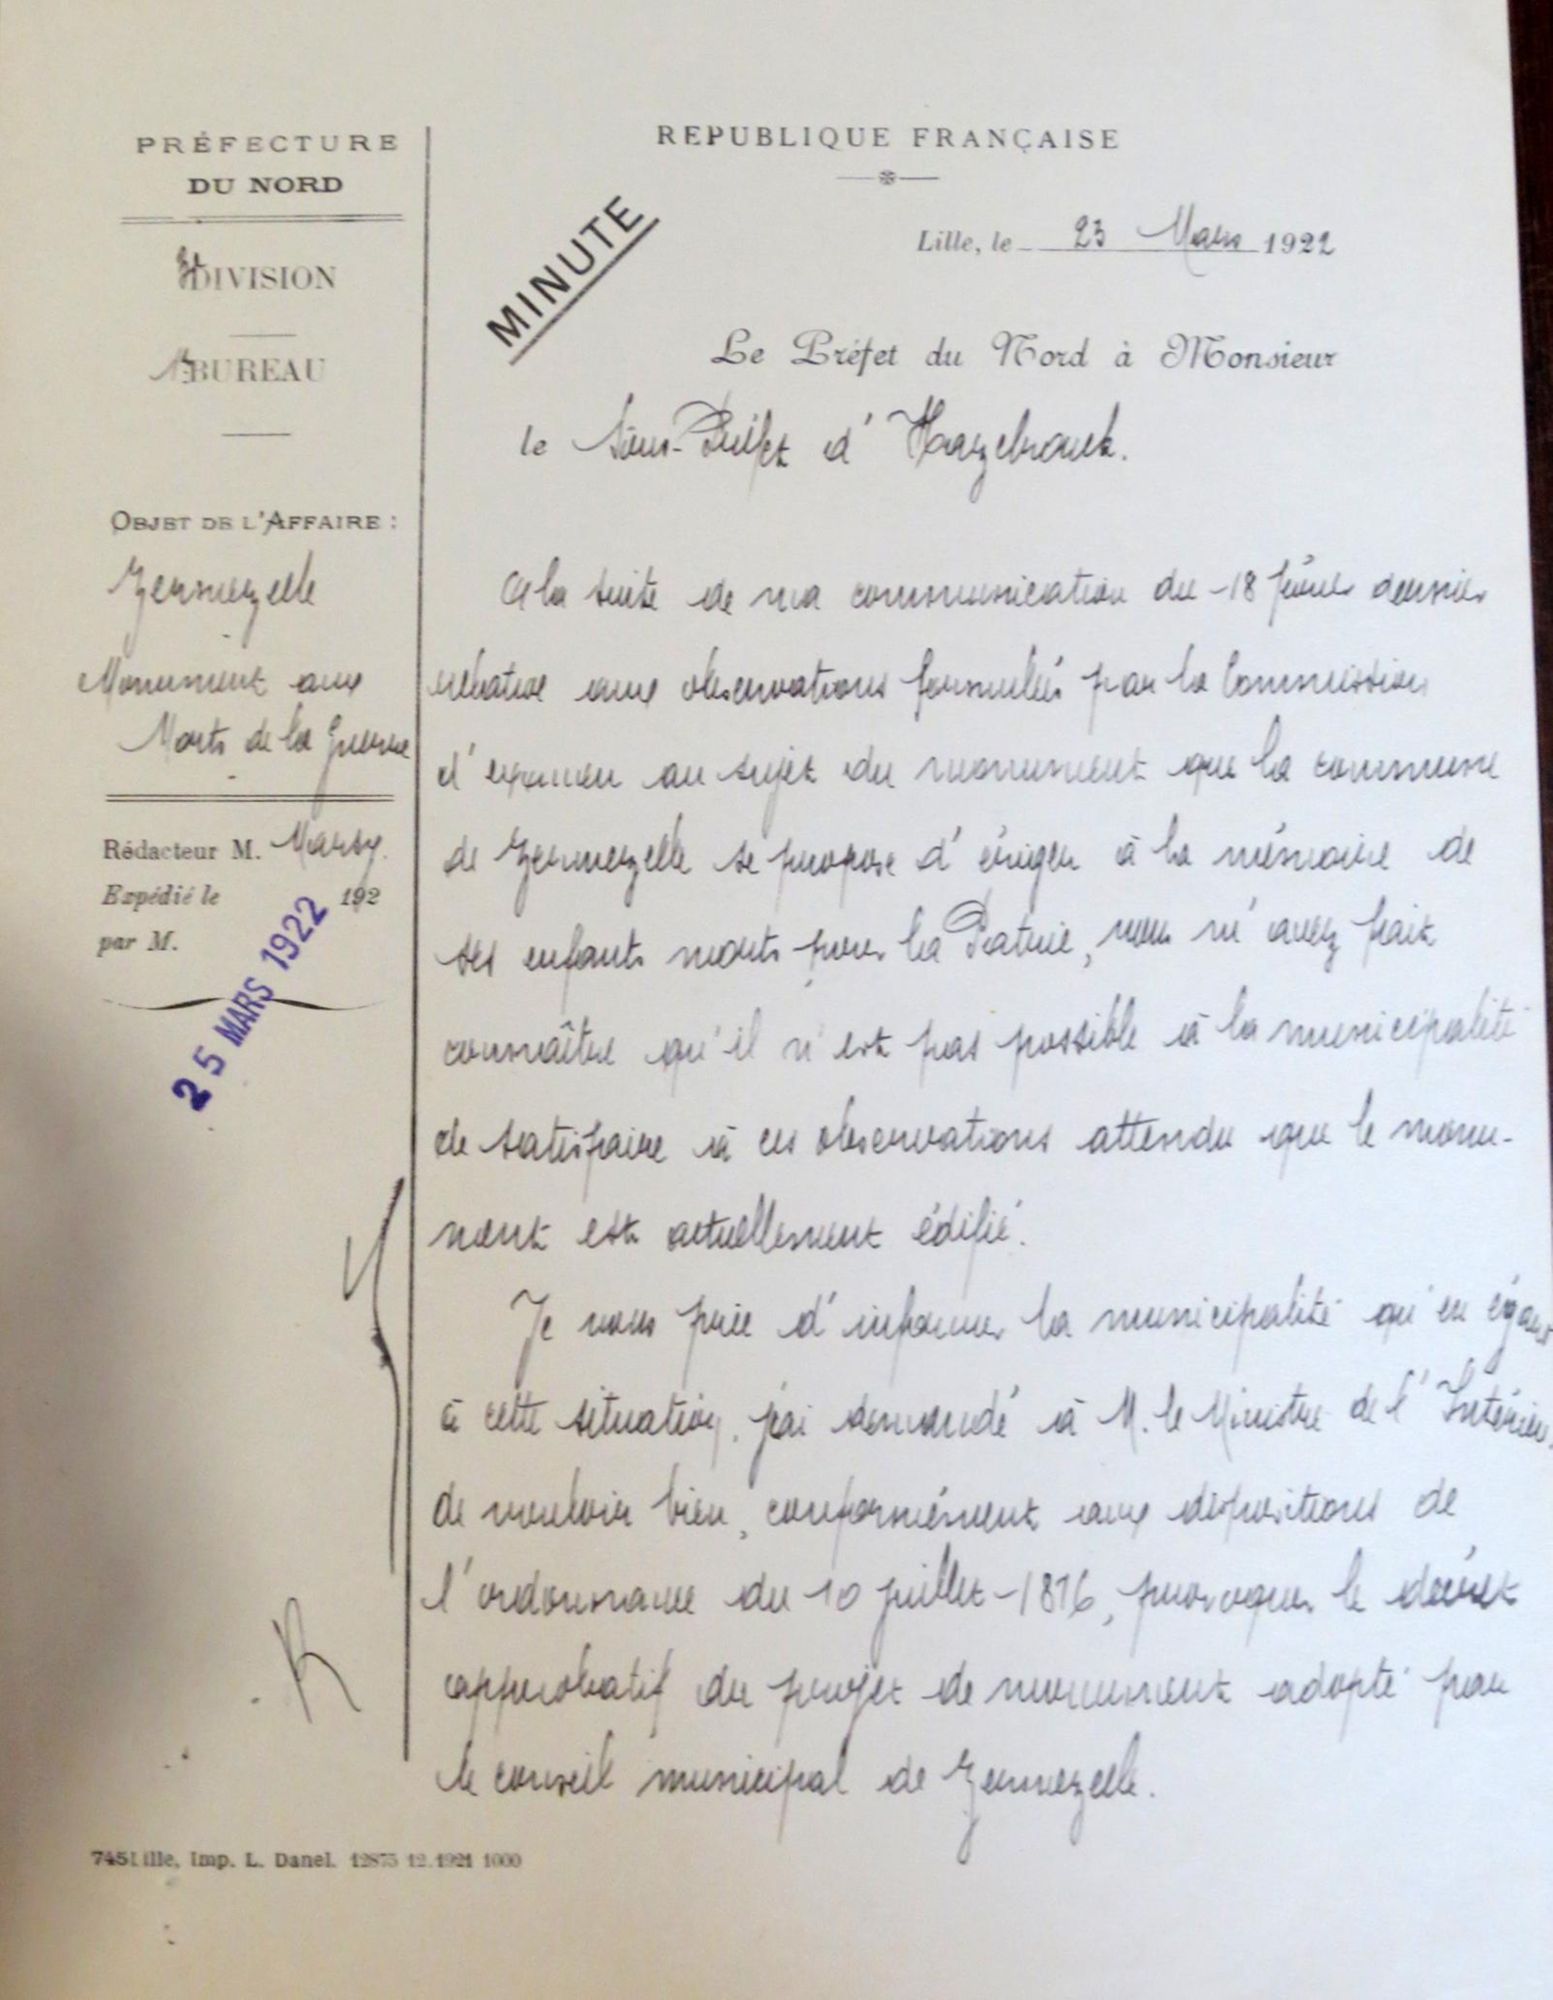 PRÉFECTURE
DU NORD
DIVISION
BUREAU
OBJET DE L'AFFAIRE :
Zermezeele
Monument aux
Morts de la Guerre
Rédacteur M. Marsy.
Expédié le 192
par M.
25 MARS 1922
REPUBLIQUE FRANÇAISE
MINUTE
Lille, le 23 Mars 1922
Le Préfet du Nord à Monsieur
le Sous-Préfet d'Hazebrouck.
A la suite de ma communication du 18 février dernier
relative aux observations formulées par la Commission
d'examen au sujet du monument que la commune
de Zermezeele se propose d'ériger à la mémoire de
ses enfants morts pour la Patrie, vous m'avez fait
connaître qu'il n'est pas possible à la municipalité
de satisfaire à ces observations attendu que le monu-
ment est actuellement édifié.
Je vous prie d'informer la municipalité qu'eu égard
à cette situation, j'ai demandé à M. le Ministre de l'Intérieur
de vouloir bien, conformément aux dispositions de
l'ordonnance du 10 juillet 1816, provoquer le décret
approbatif du projet de monument adopté par
le conseil municipal de Zermezeele.
R
745 Lille, Imp. L. Danel. 12875 12.1921 1000